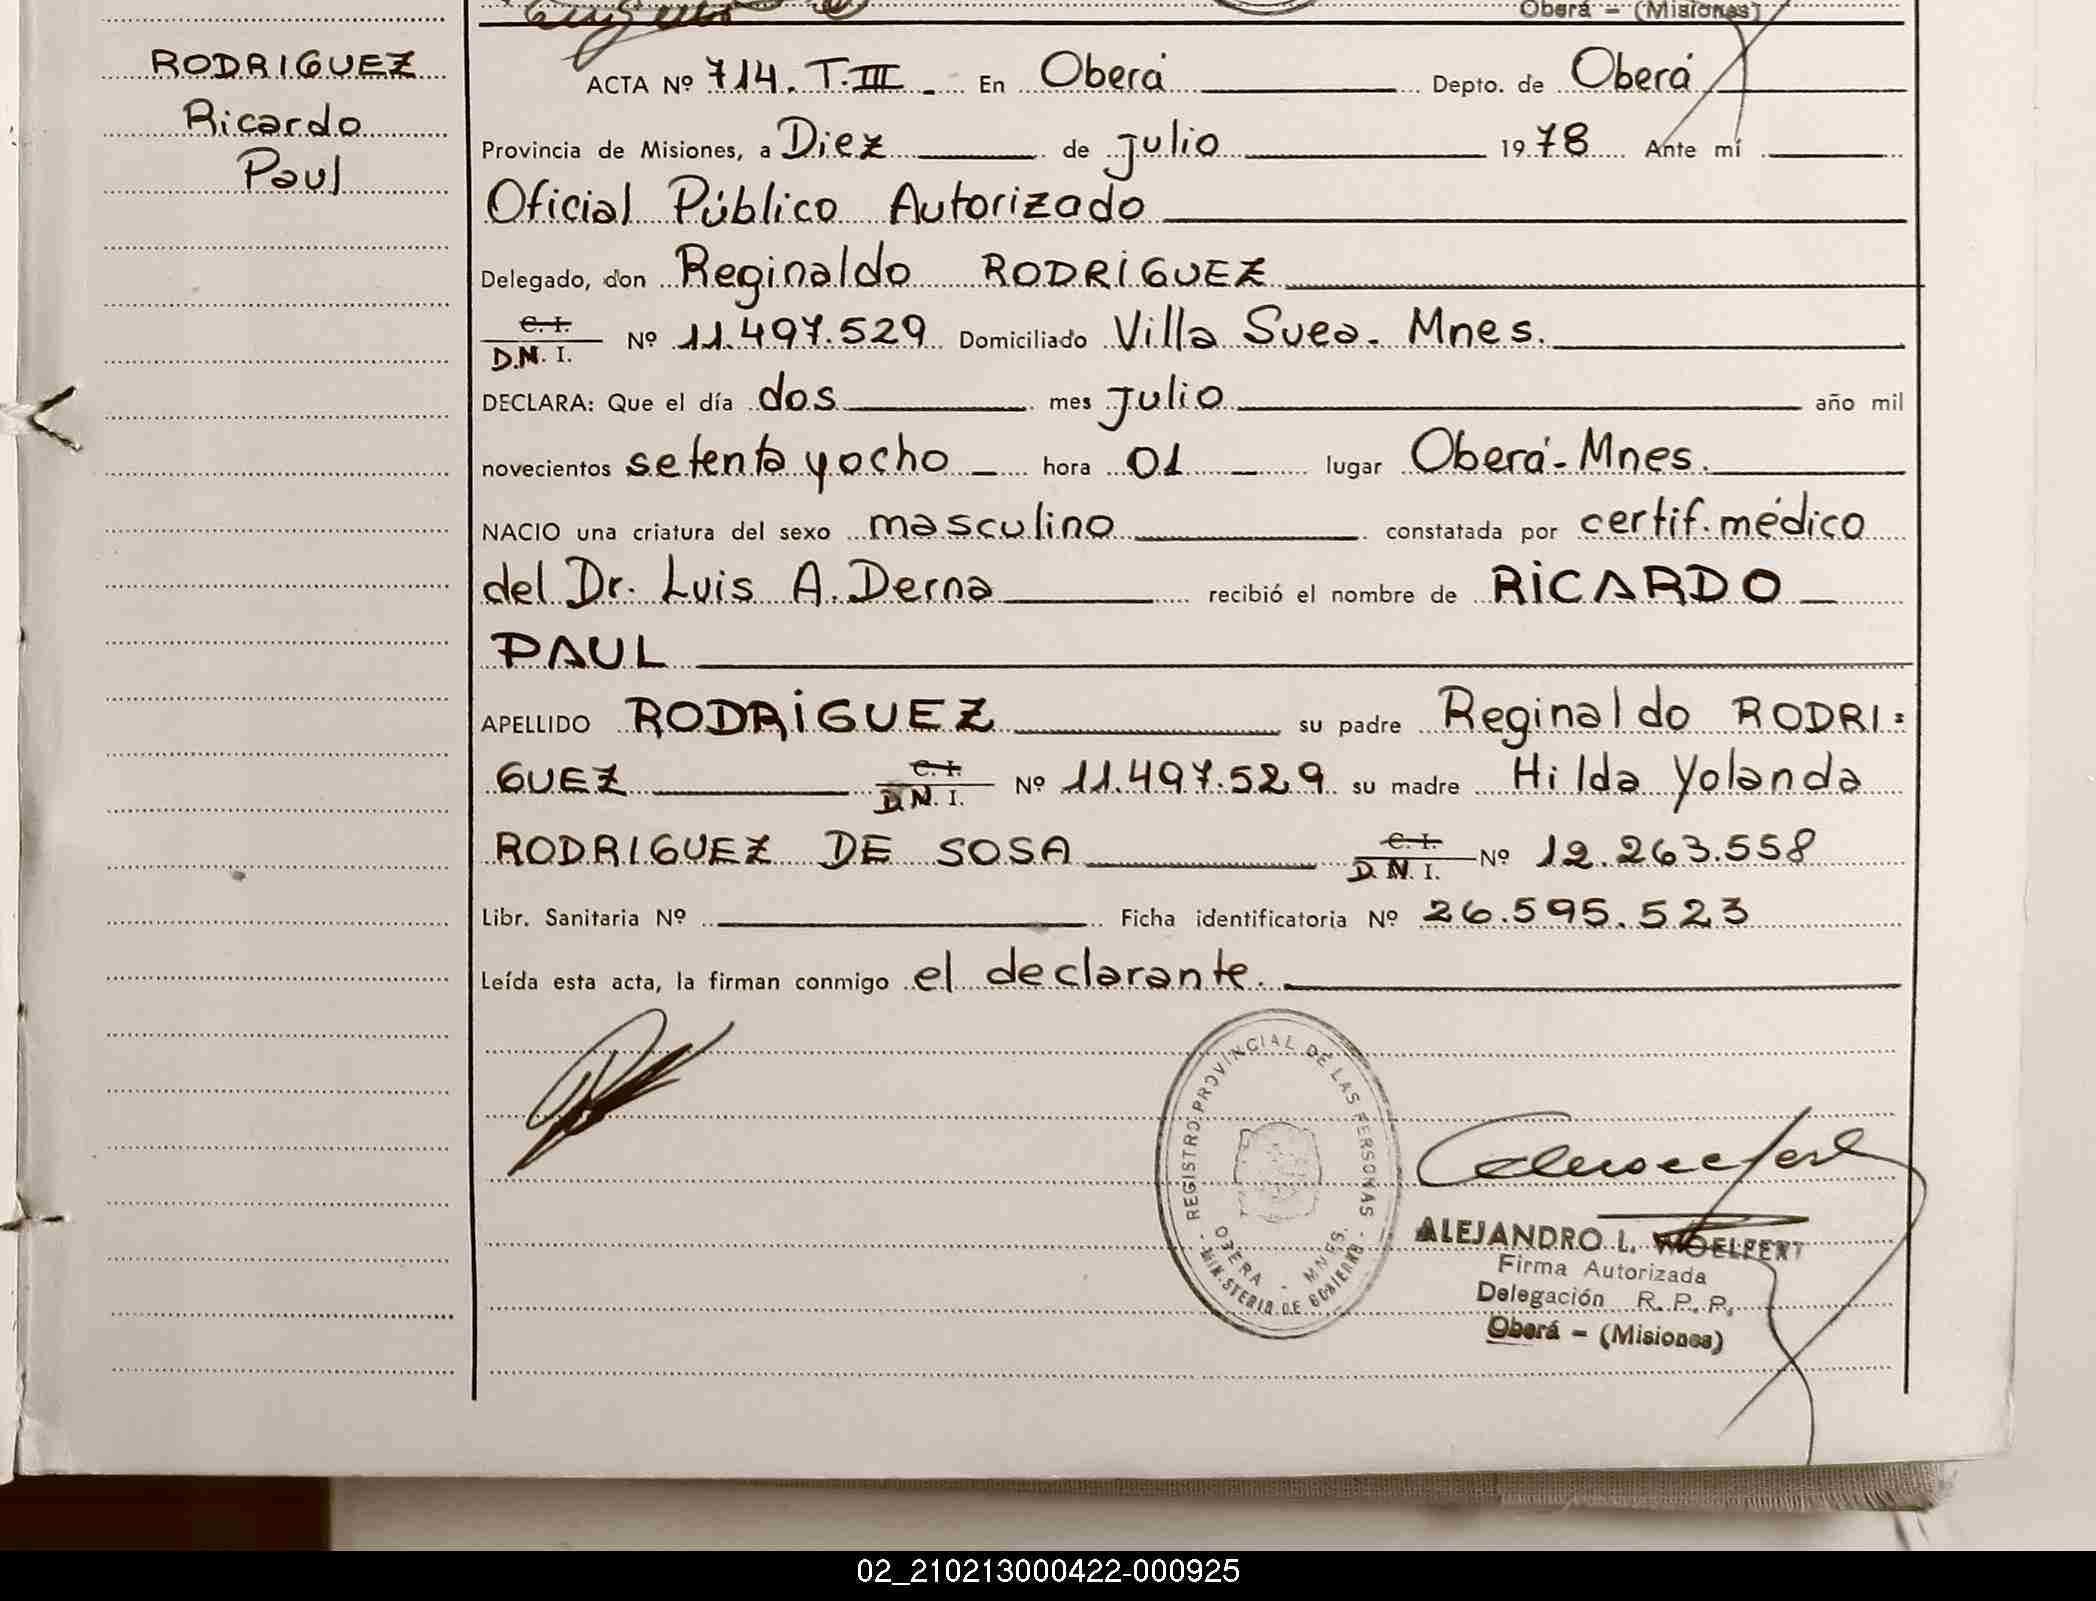 Oberá - (Misiones)
RODRIGUEZ
Ricardo
Paul
ACTA Nº 714. T.III. En Oberá Depto. de Oberá
Provincia de Misiones, a Diez de julio 1978 Ante mí
Oficial Público Autorizado
Delegado, don Reginaldo RODRIGUEZ
C.I.
D.N.I. Nº 11.497.529 Domiciliado Villa Svea. Mnes.
DECLARA: Que el día dos mes julio año mil
novecientos setenta y ocho hora 01 lugar Oberá-Mnes.
NACIO una criatura del sexo masculino constatada por certif. médico
del Dr. Luis A. Derna recibió el nombre de RICARDO
PAUL
APELLIDO RODRIGUEZ su padre Reginaldo RODRI=
GUEZ C.I. D.N.I. Nº 11.497.529 su madre Hilda Yolanda
RODRIGUEZ DE SOSA C.I. D.N.I. Nº 12.263.558
Libr. Sanitaria Nº Ficha identificatoria Nº 26.595.523
Leída esta acta, la firman conmigo el declarante.
REGISTRO PROVINCIAL DE LAS PERSONAS
OBERA - MNES.
MINISTERIO DE GOBIERNO
ALEJANDRO L. WOELFERT
Firma Autorizada
Delegación R. P. P.
Oberá - (Misiones)
02_210213000422-000925